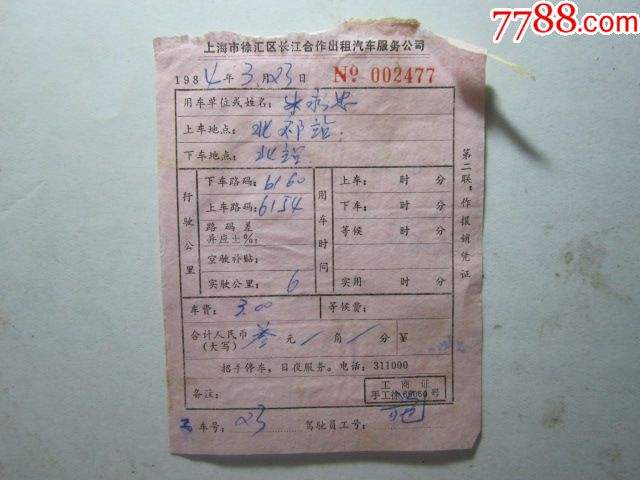 7788.com
上海市徐汇区长江合作出租汽车服务公司
1984年3月23日 No 002477
用车单位或姓名:
上车地点: 北郊站.
下车地点: 北站
行驶公里
下车路码: 6160
上车路码: 6154
路码差异应±%:
空驶补贴:
实驶公里: 6
用车时间
上车: 时 分
下车: 时 分
等候 时 分
实用: 时 分
车费: 3.00 等候费:
合计人民币(大写) 叁元/角/分¥
招手停车,日夜服务。电话:311000
备注:
工商证
手工徐66060号
车号: 23 驾驶员工号:
第二联:作报销凭证